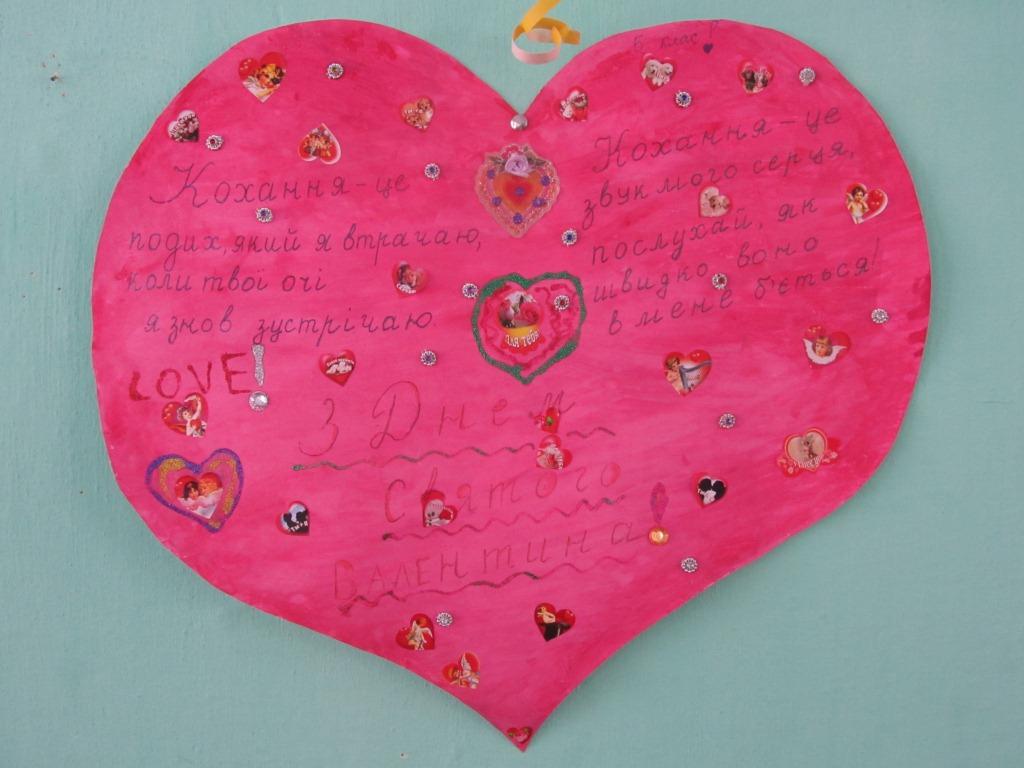 5 клас!
Кохання - це
подих, який я втрачаю,
коли твої очі
я знов зустрічаю.
LOVE!
Кохання - це
звук мого серця,
послухай, як
швидко воно
в мене б'ється!
для тебя
З Днем
Святого
Валентина!